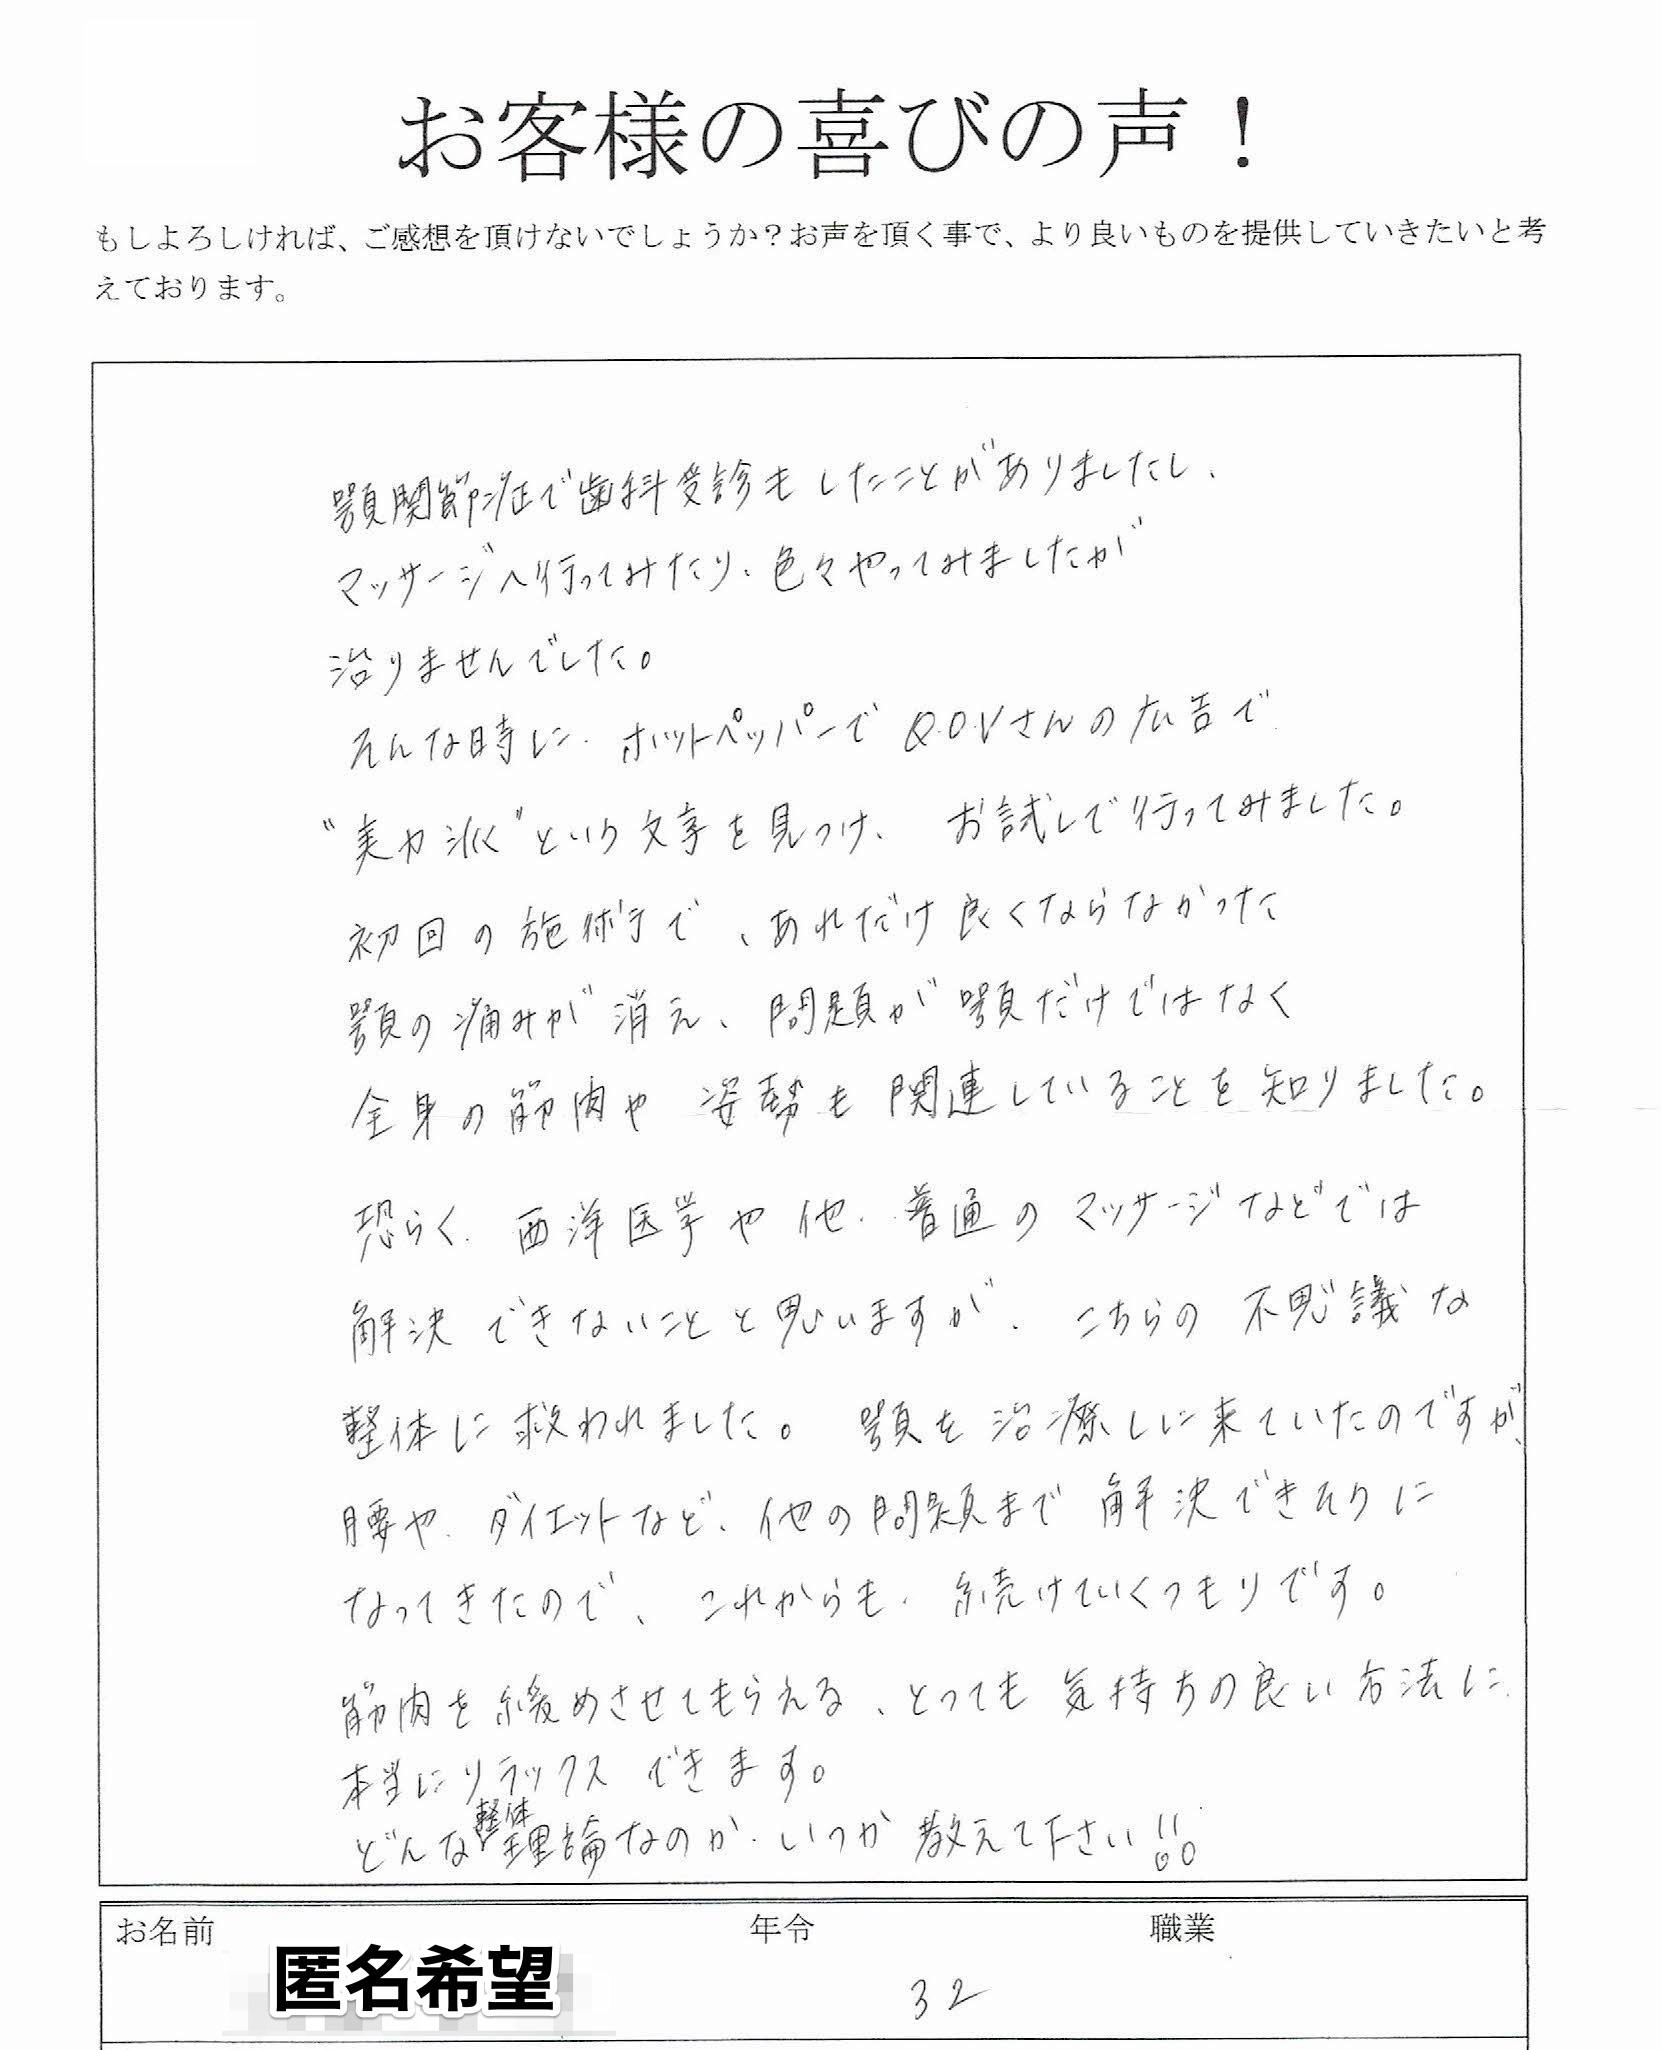 お客様の喜びの声！
もしよろしければ、ご感想を頂けないでしょうか？お声を頂く事で、より良いものを提供していきたいと考
えております。
顎関節症で歯科受診もしたことがありましたし、
マッサージへ行ってみたり、色々やってみましたが
治りませんでした。
そんな時に、ホットペッパーでQ.O.Vさんの広告で
"実力派"という文字を見つけ、お試しで行ってみました。
初回の施術で、あれだけ良くならなかった
顎の痛みが消え、問題が顎だけではなく
全身の筋肉や姿勢も関連していることを知りました。
恐らく、西洋医学や他、普通のマッサージなどでは
解決できないことと思いますが、こちらの不思議な
整体に救われました。顎を治療しに来ていたのですが、
腰や、ダイエットなど、他の問題まで解決できそうに
なってきたので、これからも、続けていくつもりです。
筋肉を緩めさせてもらえる、とっても気持ちの良い方法に、
本当にリラックスできます。
どんな整体理論なのか、いつか教えて下さい!!
お名前 年令 職業
匿名希望 32